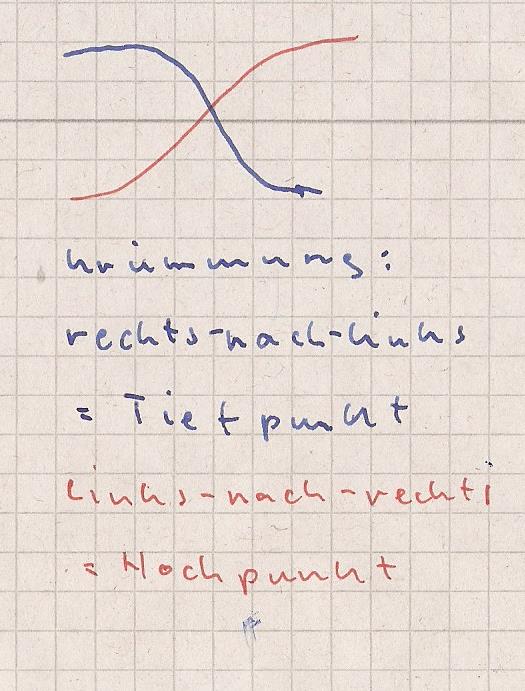 krümmung:
rechts-nach-links
= Tiefpunkt
links-nach-rechts
= Hochpunkt